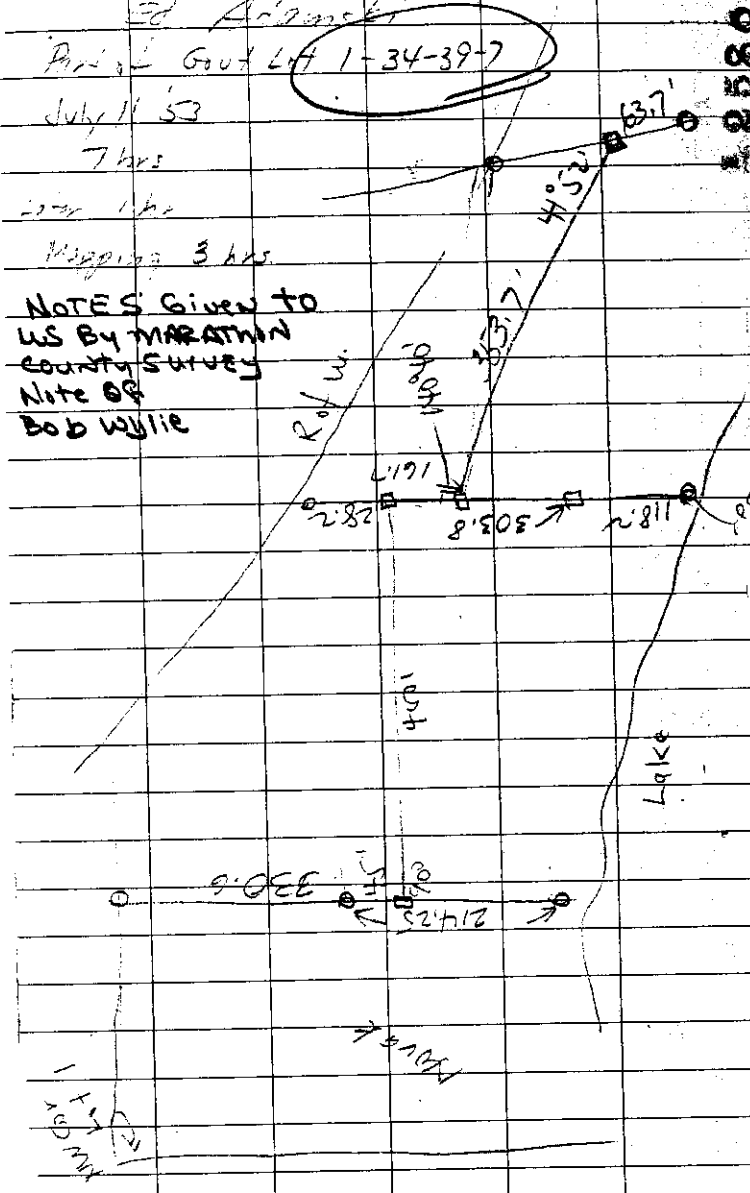 Ed Adamski
Part of Govt Lot 1-34-39-7
July 11 '53
7 hrs
1 hr
Mapping 3 hrs.
NOTES Given to
US By MARATHON
County Survey
Note OF
Bob Wylie
63.7'
41°52'
353.7'
R of W.
161.7
28.2
303.8
118.2
440'
Lake
330.6
45'
90°
214.25
North
NW Cor
Lot 1